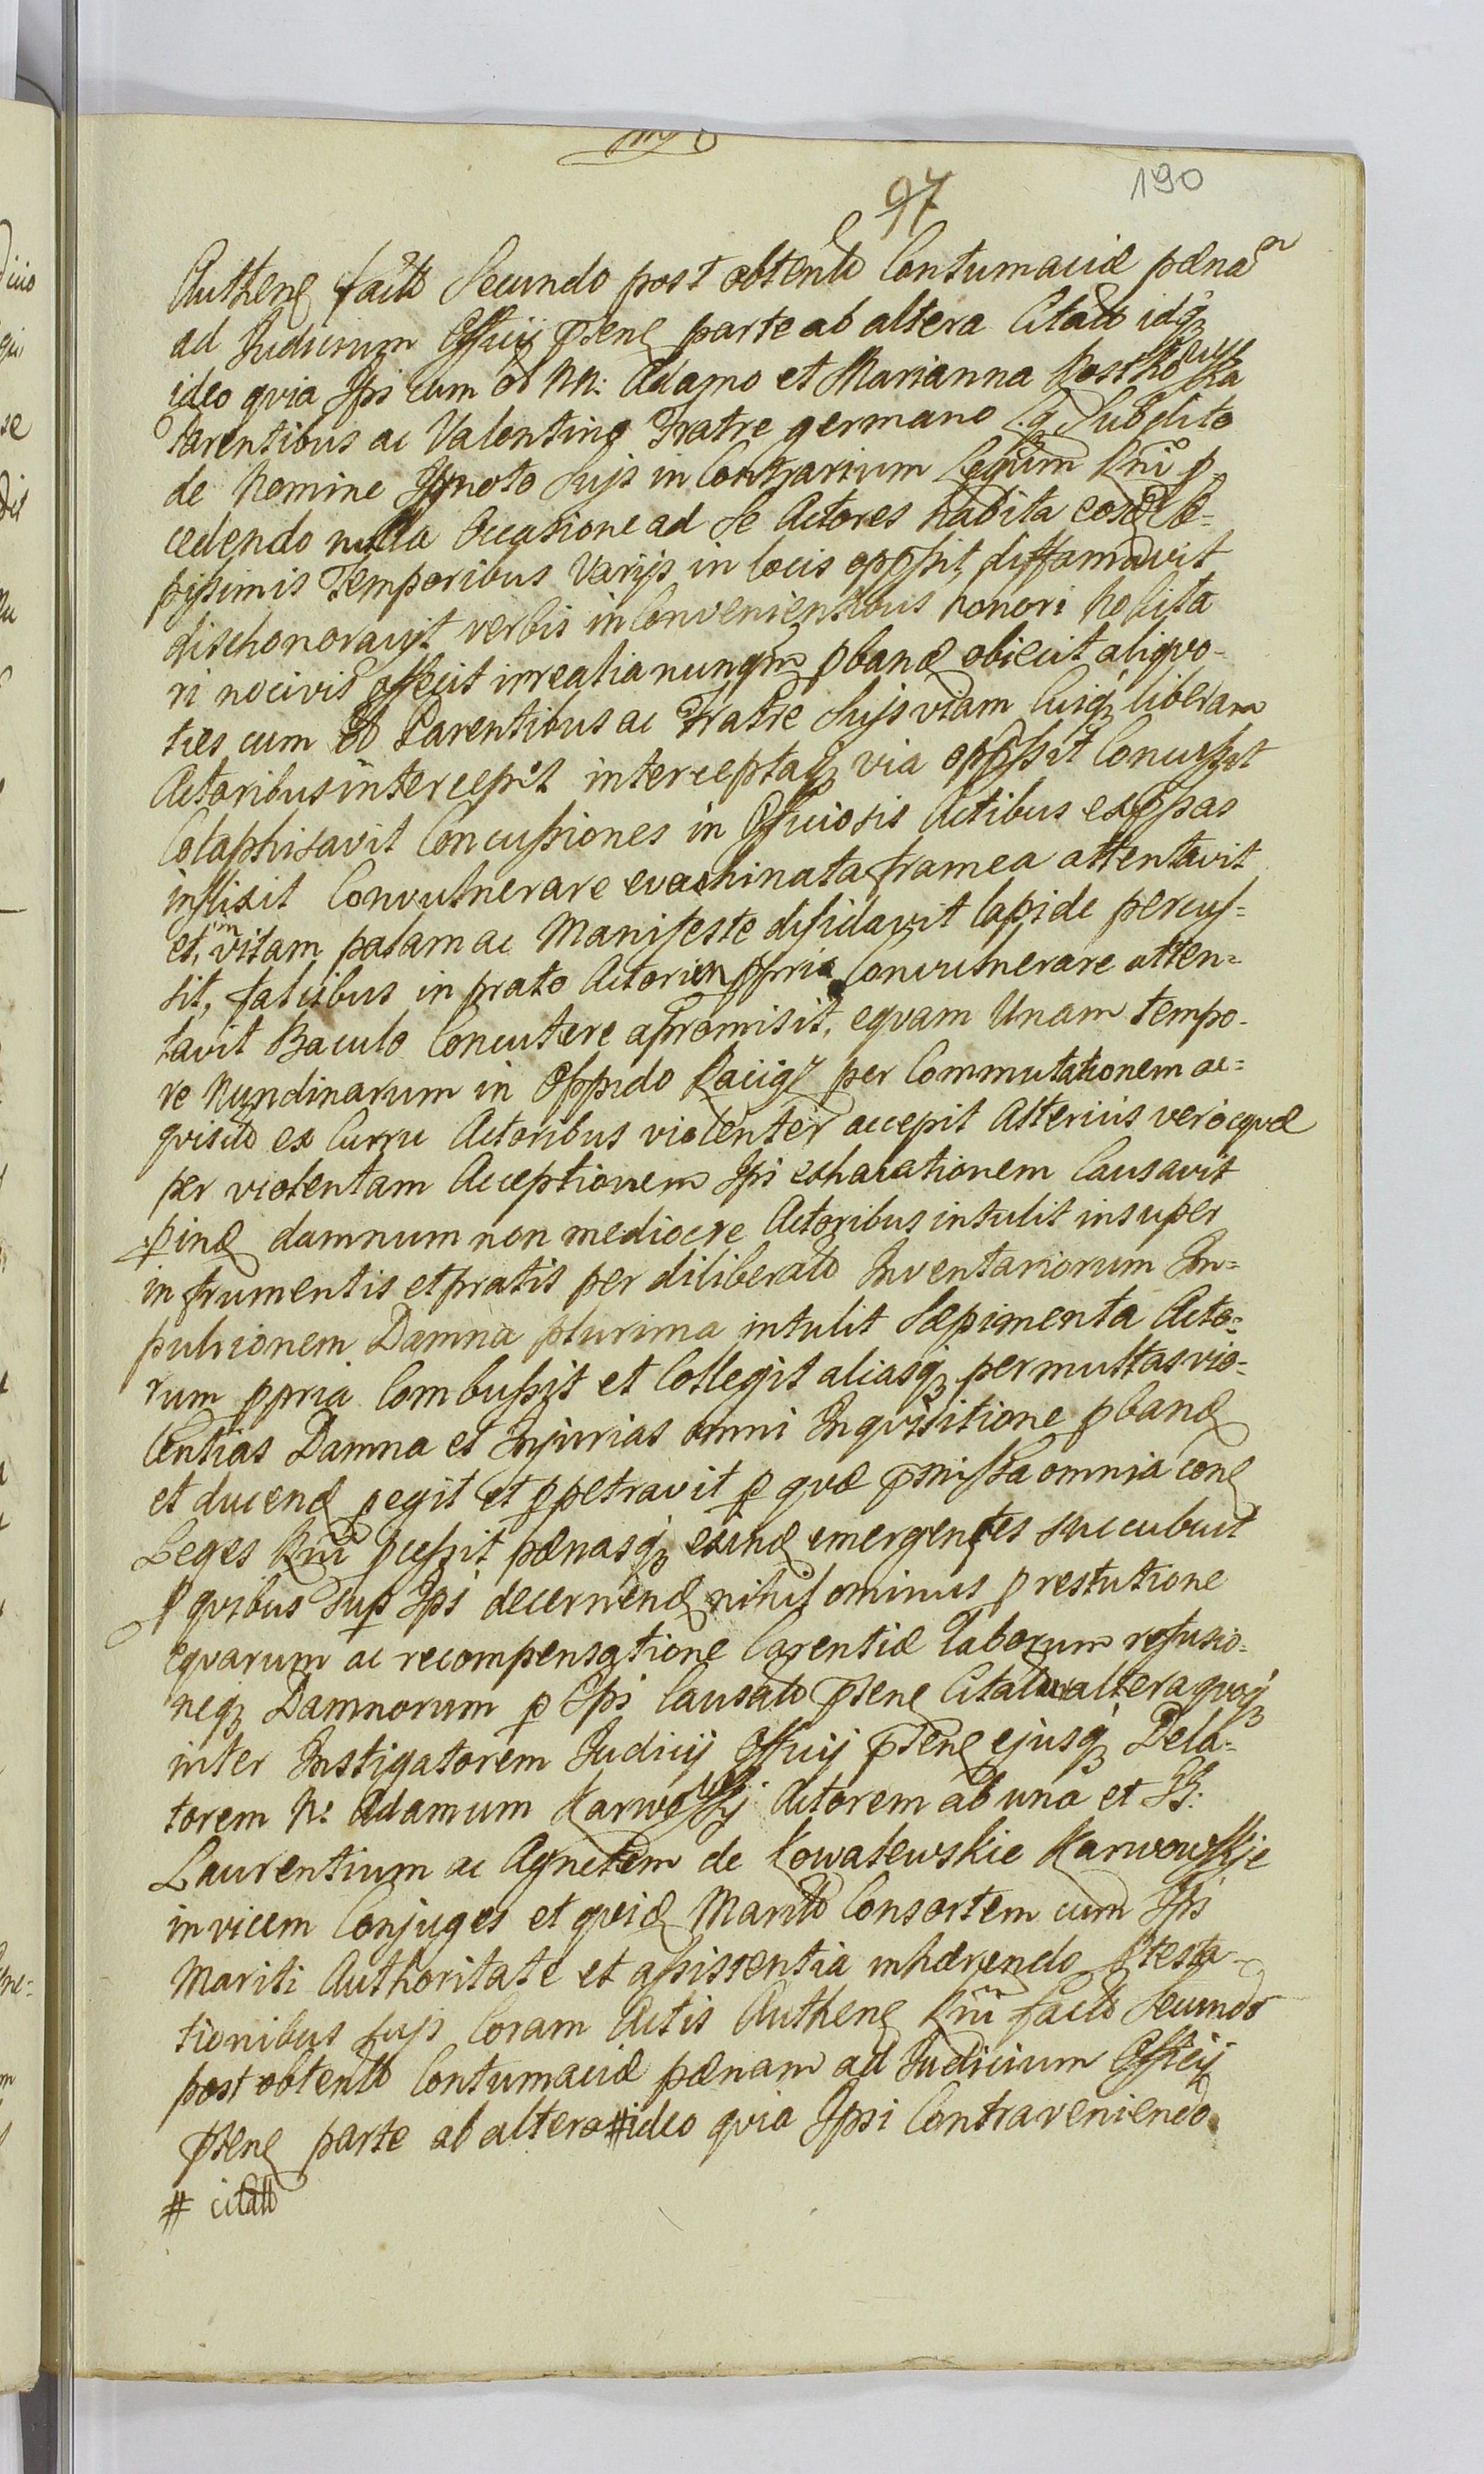 97
190
Authene facto Secundo post obtento Contumaciæ pœnam
ad Judicium Officij psene parte ab altera Citato idq
ideo qvia Ipsi cum et NN: Adamo et Marianna
Parentibus ac Valentino Fratre germano Subdito
de Nomine Ignoto Suis in Contrarium Legum Rni p
cedendo nulla Occasione ad se Actores habita eosd Sæ=
pissimis Temporibus Varijs in locis oppssit diffamavit
dischonoravit verbis inconvenientibus honori nobilita
ri nocivis affecit irrealia nunqm pband obiecit aliqvo-
ties cum et Parentibus ac Fratre Suis viam Cuiq liberam
Actoribus intercepit interceptaq via oppssit Concussit
Colaphisavit Concussiones in Officiosis Actibus expssas
inflixit Convulnerare evachinata framea attentavit
et in vitam palam ac Manifeste disfidavit lapide percus=
sit, falcibus in prato Actorum ppria Convulnerare atten=
tavit Baculo Concutere apromisit, eqvam Unam tempo-
re Nundinarum in Oppido Raciąz per Commutationem ac=
qvisito ex Curru Actoribus violenter accepit Alterius vero eqvæ
per violentam Acceptionem Ipsi exhacationem Causavit
pind damnum non mediocre Actoribus intulit insuper
in frumentis et pratis per diliberato Inventariorum Im=
pulsionem Damna plurima intulit Sæpimenta Acto=
rum ppria Combussit et Collegit aliasq permultas vio=
lentias Damna et Injurias omni Inqvisitione pband
et ducend pegit et ppetravit p qvæ pmissa omnia cone
Leges Rni pcessit pœnasq exind emergentes succubuit
p qvibus sup Ipsi decernend nihil ominus p restutione
eqvarum ac recompensatione Carentiæ Laborum refusio=
neq Damnorum p Ipsi Causato psene Citato altera qvoq
inter Instigatorem Judicij Officij psene ejusq Dela=
torem N: Adamum Karwowski Actorem ab una et
Laurentium ac Agnetem de Kowalewskie Karwowskie
invicem Conjuges et qvid Marito Consortem cum Ipsi
Mariti Authoritate et assistentia inhærendo ptesta-
tionibus suis Coram Actis Authene Rni facto Secundo
post obtento Contumaciæ pœnam ad Judicium Officij
psene parte ab altera # ideo qvia Ipsi Contraveniendo
# citato